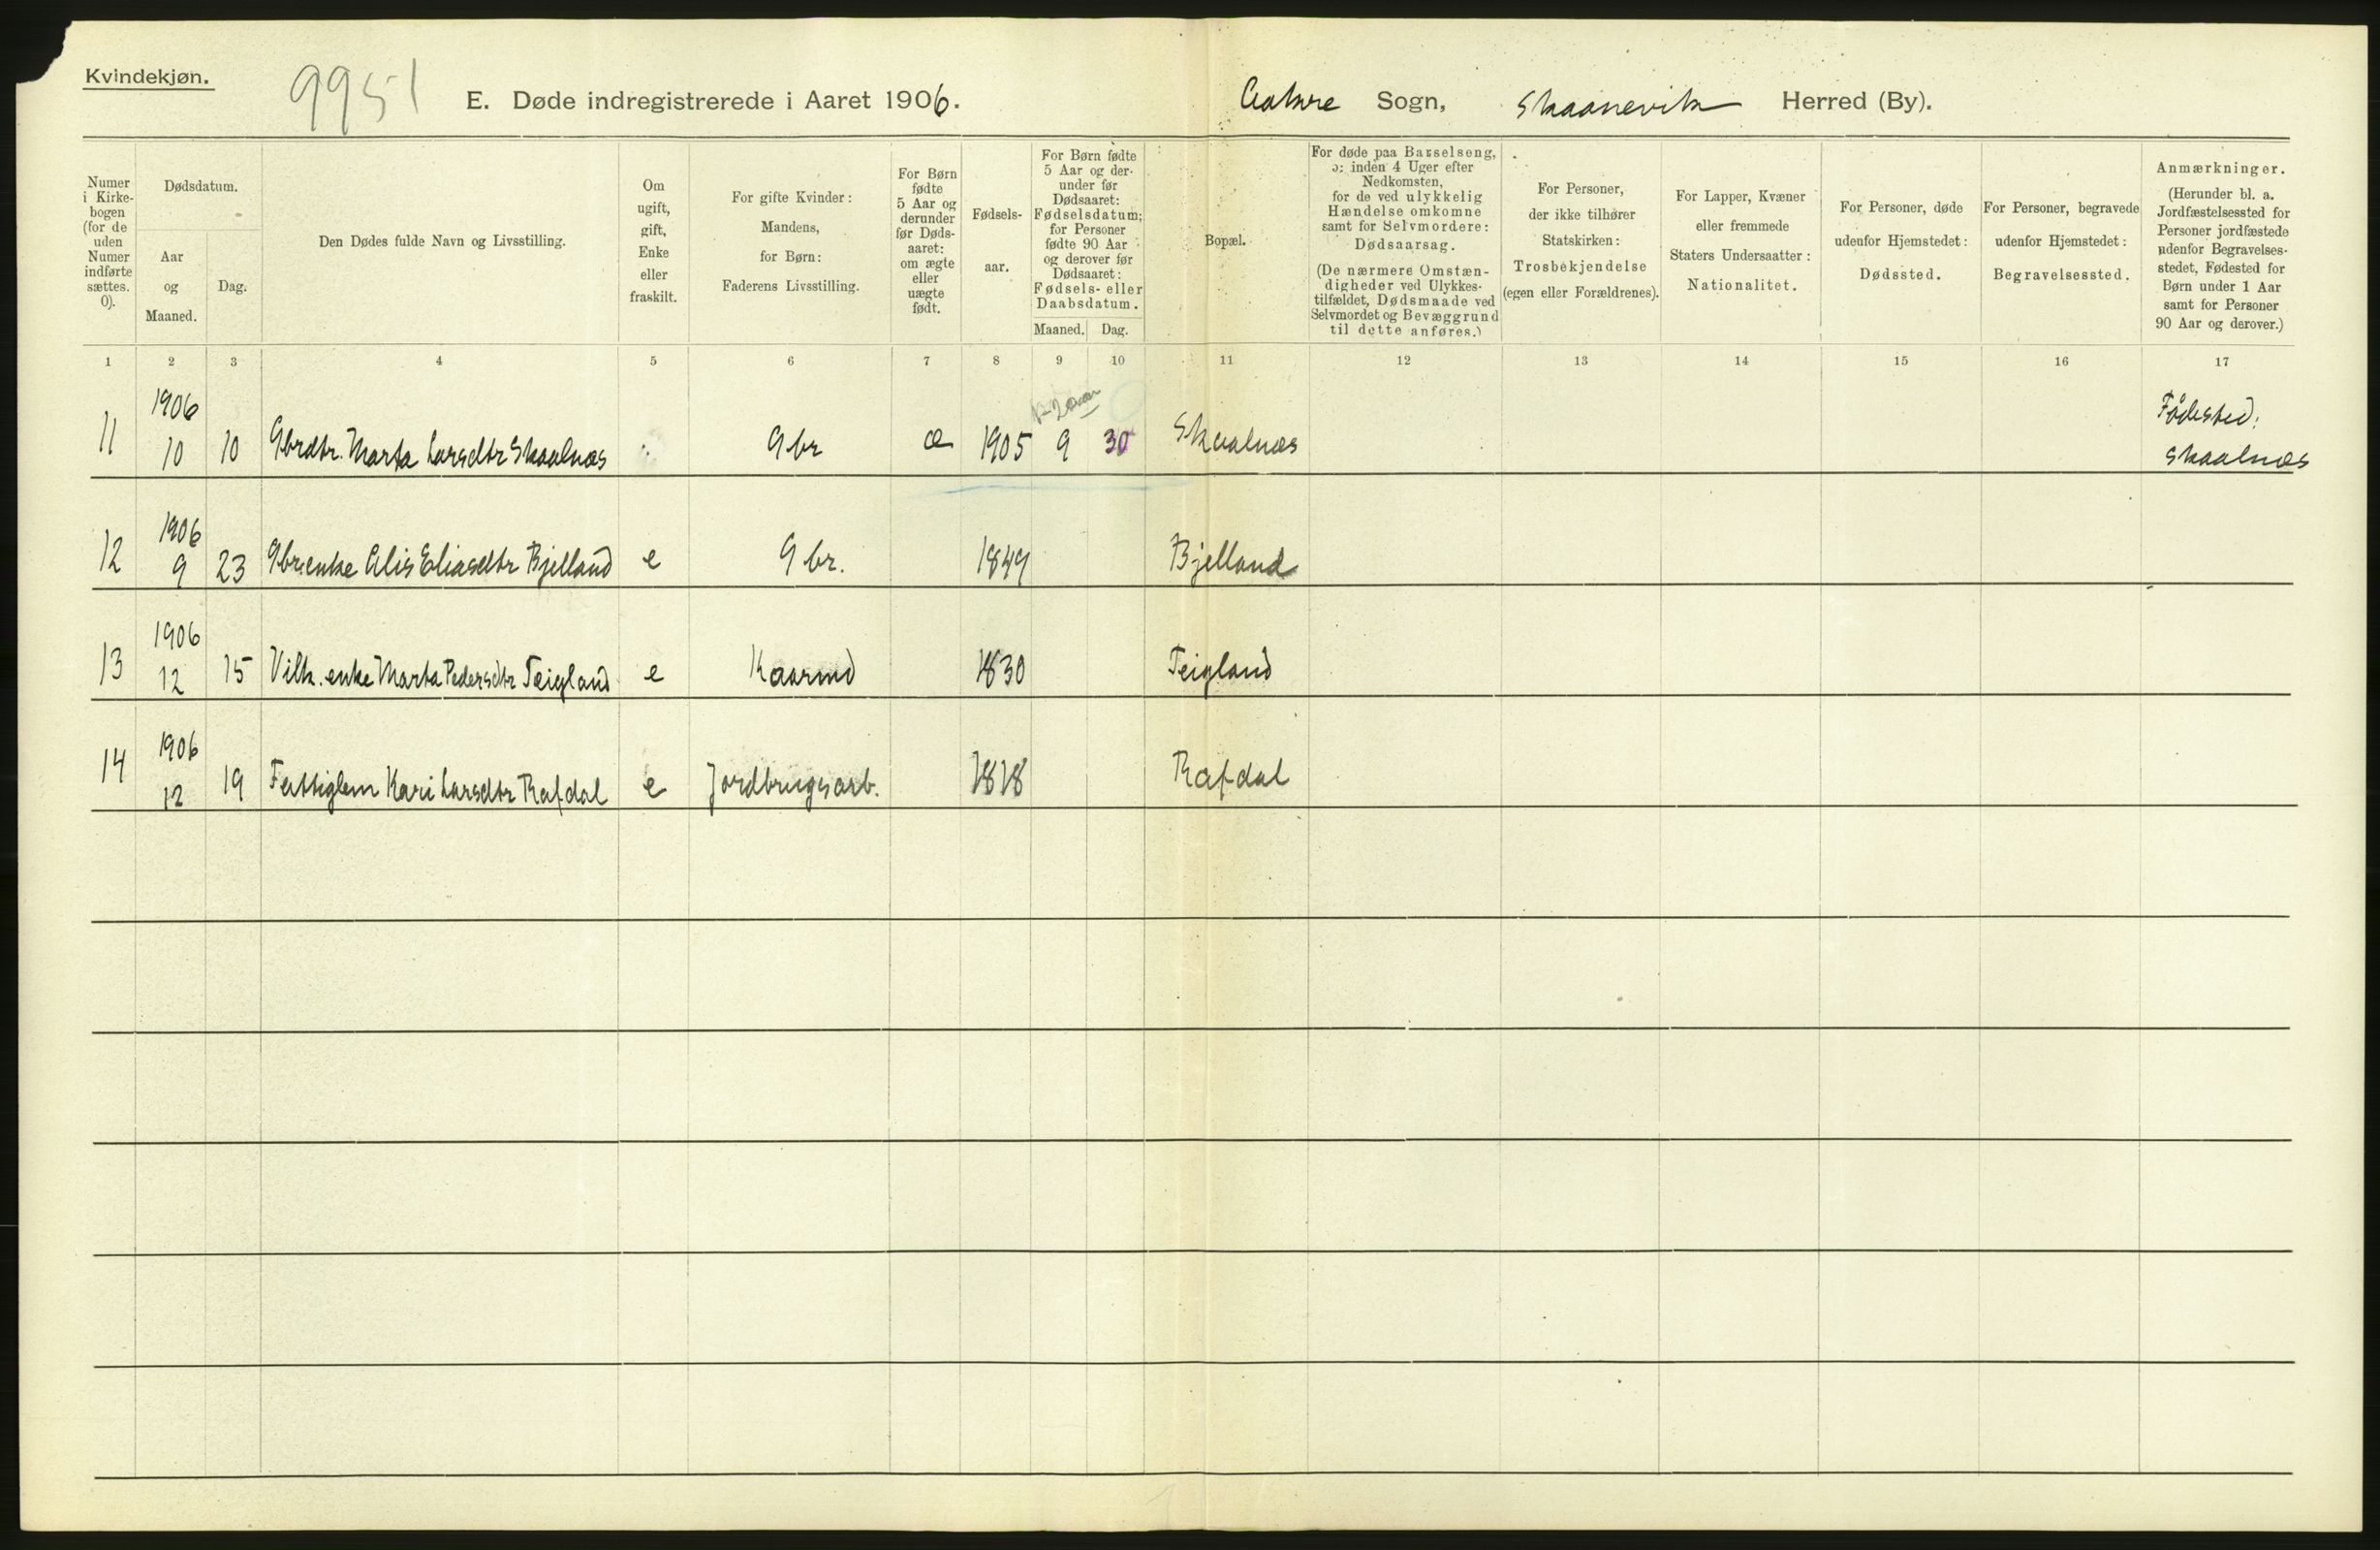 Kvindekjøn.
9951
E. Døde indregistrerede i Aaret 1906.
Aakre Sogn, Skaanevik Herred (By).
Numer
i Kirke-
bogen
(for de
uden
Numer
indførte
sættes.
0).
Dødsdatum.
Aar
og
Maaned.
Dag.
Den Dødes fulde Navn og Livsstilling.
Om
ugift,
gift,
Enke
eller
fraskilt.
For gifte Kvinder:
Mandens,
for Børn:
Faderens Livsstilling.
For Børn
fødte
5 Aar og
derunder
før Døds-
aaret:
om ægte
eller
uægte
født.
Fødsels-
aar.
For Børn fødte
5 Aar og der-
under før
Dødsaaret:
Fødselsdatum;
for Personer
fødte 90 Aar
og derover før
Dødsaaret:
Fødsels- eller
Daabsdatum.
Maaned. Dag.
Bopæl.
For døde paa Barselseng,
ɔ: inden 4 Uger efter
Nedkomsten,
for de ved ulykkelig
Hændelse omkomne
samt for Selvmordere:
Dødsaarsag.
(De nærmere Omstæn-
digheder ved Ulykkes-
tilfældet, Dødsmaade ved
Selvmordet og Bevæggrund
til dette anføres.)
For Personer,
der ikke tilhører
Statskirken:
Trosbekjendelse
(egen eller Forældrenes).
For Lapper, Kvæner
eller fremmede
Staters Undersaatter:
Nationalitet.
For Personer, døde
udenfor Hjemstedet:
Dødssted.
For Personer, begravede
udenfor Hjemstedet:
Begravelsessted.
Anmærkninger.
(Herunder bl. a.
Jordfæstelsessted for
Personer jordfæstede
udenfor Begravelses-
stedet, Fødested for
Børn under 1 Aar
samt for Personer
90 Aar og derover.)
1 2 3 4 5 6 7 8 9 10 11 12 13 14 15 16 17
1906
11 10 10 Gbrdtr. Marta Larsdtr Skaalnæs Gbr æ 1905 9 30 Skaalnæs
Fødested:
Skaalnæs
1906
12 9 23 Gbr.enke Alis Eliasdtr Bjelland e Gbr. 1849 Bjelland
1906
13 12 15 Vilk. enke Marta Pedersdtr Teigland e Kaarmd 1830 Teigland
1906
14 12 19 Fattiglem Kari Larsdtr Rafdal e Jordbrugsarb. 1818 Rafdal